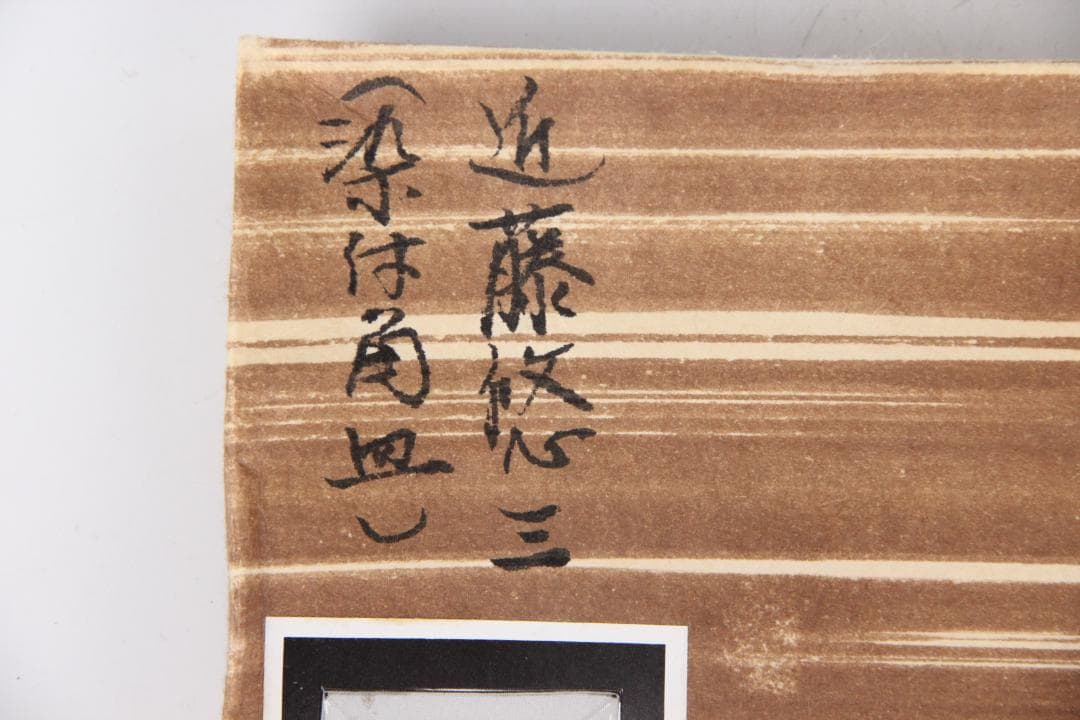 近藤悠三
（染付角皿）